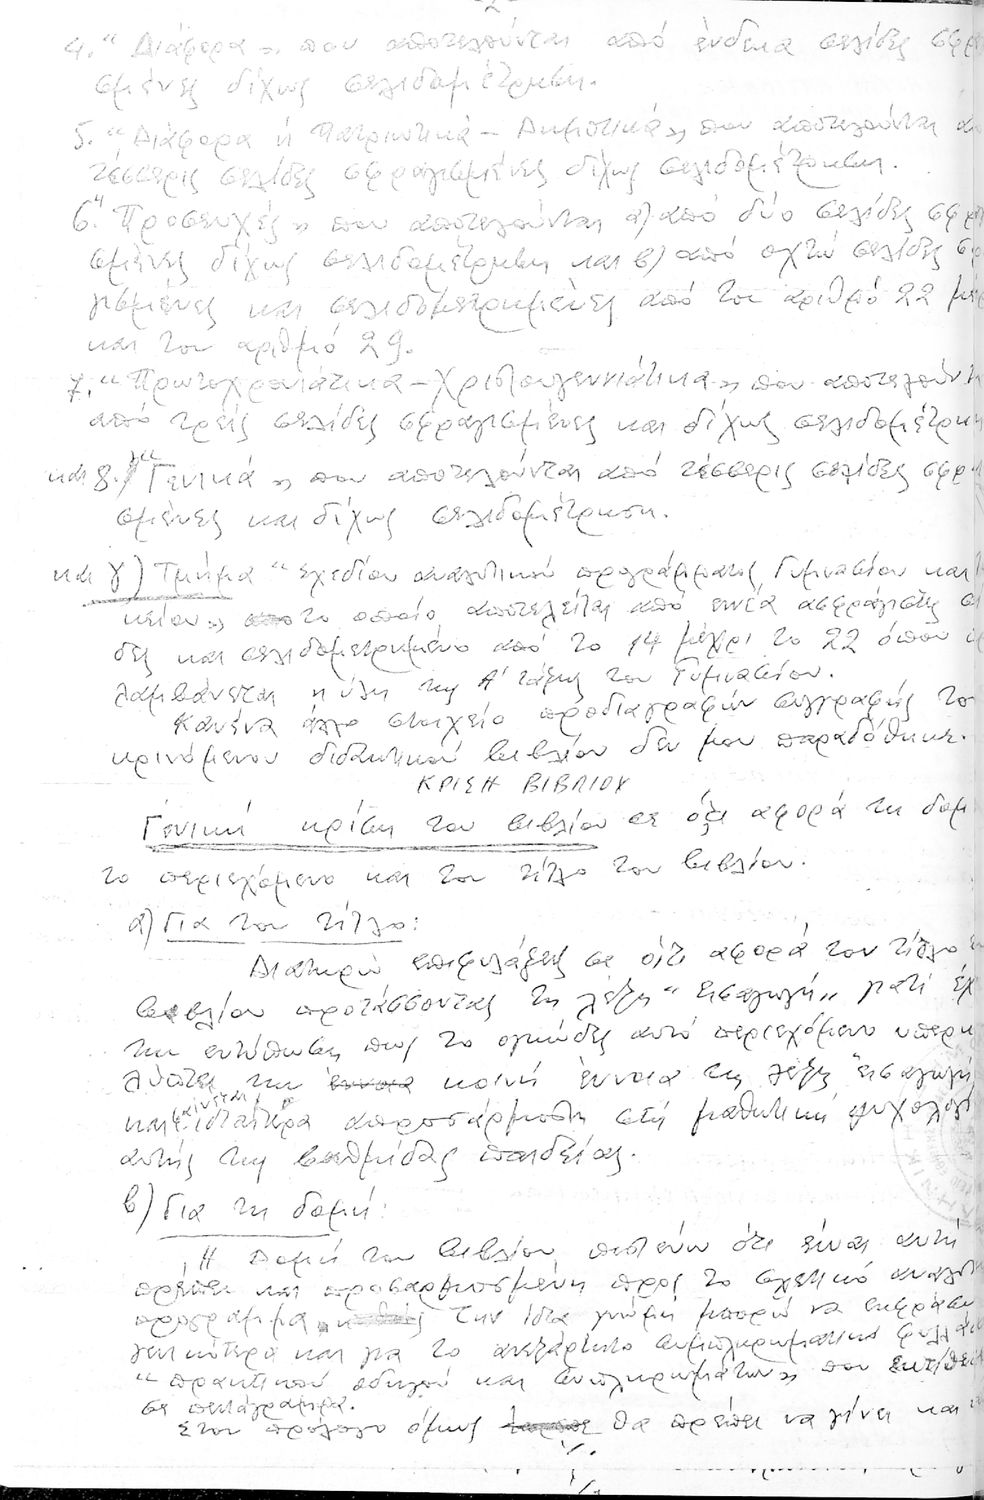 -2-
4. "Διάφορα„ που αποτελούνται από ένδεκα σελίδες σφρα
σμένες δίχως σελιδομέτρηση.
5. "Διάφορα ή Πατριωτικά - Δημοτικά„ που αποτελούνται απ
τέσσερις σελίδες σφραγισμένες δίχως σελιδομέτρηση.
6. "Προσευχές„ που αποτελούνται α) από δύο σελίδες σφρα
σμένες δίχως σελιδομέτρηση και β) από οχτώ σελίδες σφρ
γισμένες και σελιδομετρημένες από τον αριθμό 22 μέχ
και τον αριθμό 29.
7. "Πρωτοχρονιάτικα - Χριστουγεννιάτικα„ που αποτελούντ
από τρείς σελίδες σφραγισμένες και δίχως σελιδομέτρησ
και 8. "Γενικά„ που αποτελούνται από τέσσερις σελίδες σφρα
σμένες και δίχως σελιδομέτρηση.
και γ) Τμήμα "σχεδίου αναλυτικού προγράμματος Γυμνασίου και Λ
κείου„ το οποίο αποτελείται από εννέα ασφράγιστες σελ
δες και σελιδομετρημένο από το 14 μέχρι το 22 όπου
λαμβάνεται η ύλη της Α' τάξης του Γυμνασίου.
Κανένα άλλο στοιχείο προδιαγραφών συγγραφής το
κρινόμενου διδακτικού βιβλίου δεν μου παραδόθηκε.
ΚΡΙΣΗ ΒΙΒΛΙΟΥ
Γενική κρίση του βιβλίου σε ό,τι αφορά τη δομ
το περιεχόμενο και τον τίτλο του βιβλίου.
α) Για τον τίτλο:
Διατηρώ επιφυλάξεις σε ό,τι αφορά τον τίτλο
βιβλίου προτάσσοντας τη λέξη "εισαγωγή„ γιατί έχ
την εντύπωση πως το ογκώδες αυτό περιεχόμενο υπερκα
λύπτει την κοινή έννοια της λέξης "εισαγωγή
και φαίνεται ιδιαίτερα απροσάρμοστη στη μαθητική ψυχολογί
αυτής της βαθμίδας παιδείας.
β) Για τη δομή:
Η δομή του βιβλίου πιστεύω ότι είναι αυτή
πρέπει και προσαρμοσμένη προς το σχετικό αναλυτι
πρόγραμμα. Την ίδια γνώμη μπορώ να εκφράσω
γενικότερα και για το ανεξάρτητο συμπληρωματικό φυλλάδ
"πρακτικού οδηγού και συμπληρωμάτων„ που εκτίθετ
σε πεντάγραμμα.
Στον πρόλογο όμως θα πρέπει να γίνει και
./.